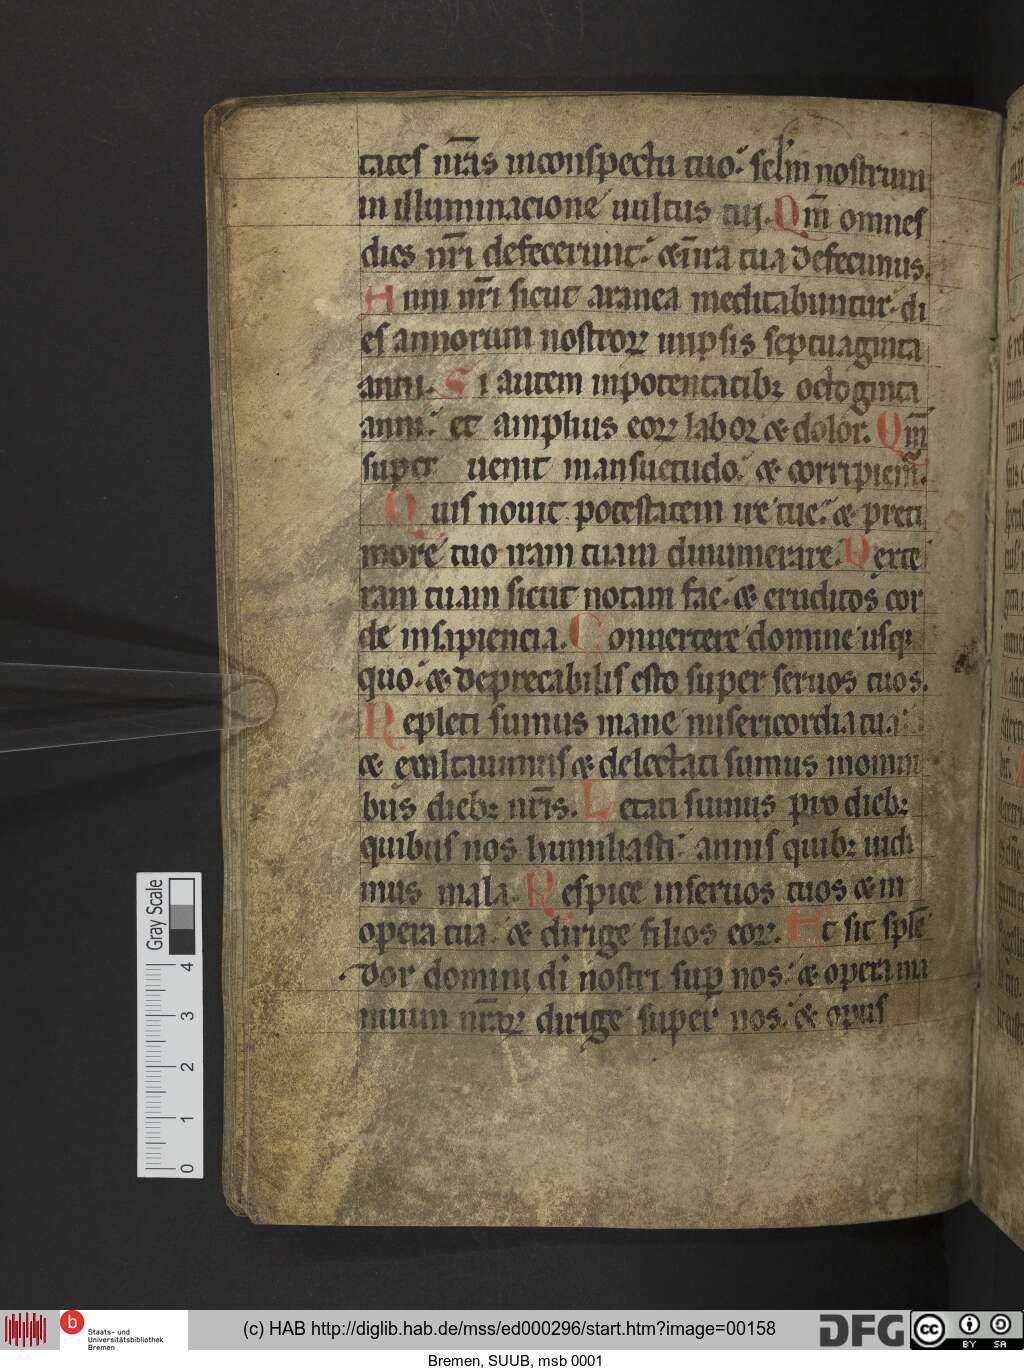 tates nr̄as in conspectu tuo: sc̄lm nostrum
in illuminatione uultus tui. Qm̄ omnes
dies nr̄i defecerunt: & in ira tua defecimus.
Anni nr̄i sicut aranea meditabuntur: di
es annorum nostroꝝ in ipsis septuaginta
anni. Si autem in potentatibꝫ octoginta
anni: et amplius eoꝝ labor & dolor. Qm̄
super uenit mansuetudo: & corripiem̄.
Quis nouit potestatem ire tue: & pre ti
more tuo iram tuam dinumerare. Dexte
ram tuam sicut notam fac: & eruditos cor
de in sapiencia. Conuertere domine usq
quo: & deprecabilis esto super seruos tuos.
Repleti sumus mane misericordia tua:
& exultauimus & delectati sumus in omni
bus diebꝫ nr̄is. Letati sumus pro diebꝫ
quibus nos humiliasti: annis quibꝫ uidi
mus mala. Respice in seruos tuos & in
opera tua: & dirige filios eoꝝ. Et sit splē
dor domini di nostri suꝑ nos: & opera ma
nuum nr̄aꝝ dirige super nos: & opus
Gray Scale
4
3
2
1
0
b
Staats- und
Universitätsbibliothek
Bremen
(c) HAB http://diglib.hab.de/mss/ed000296/start.htm?image=00158
DFG
cc
BY SA
Bremen, SUUB, msb 0001